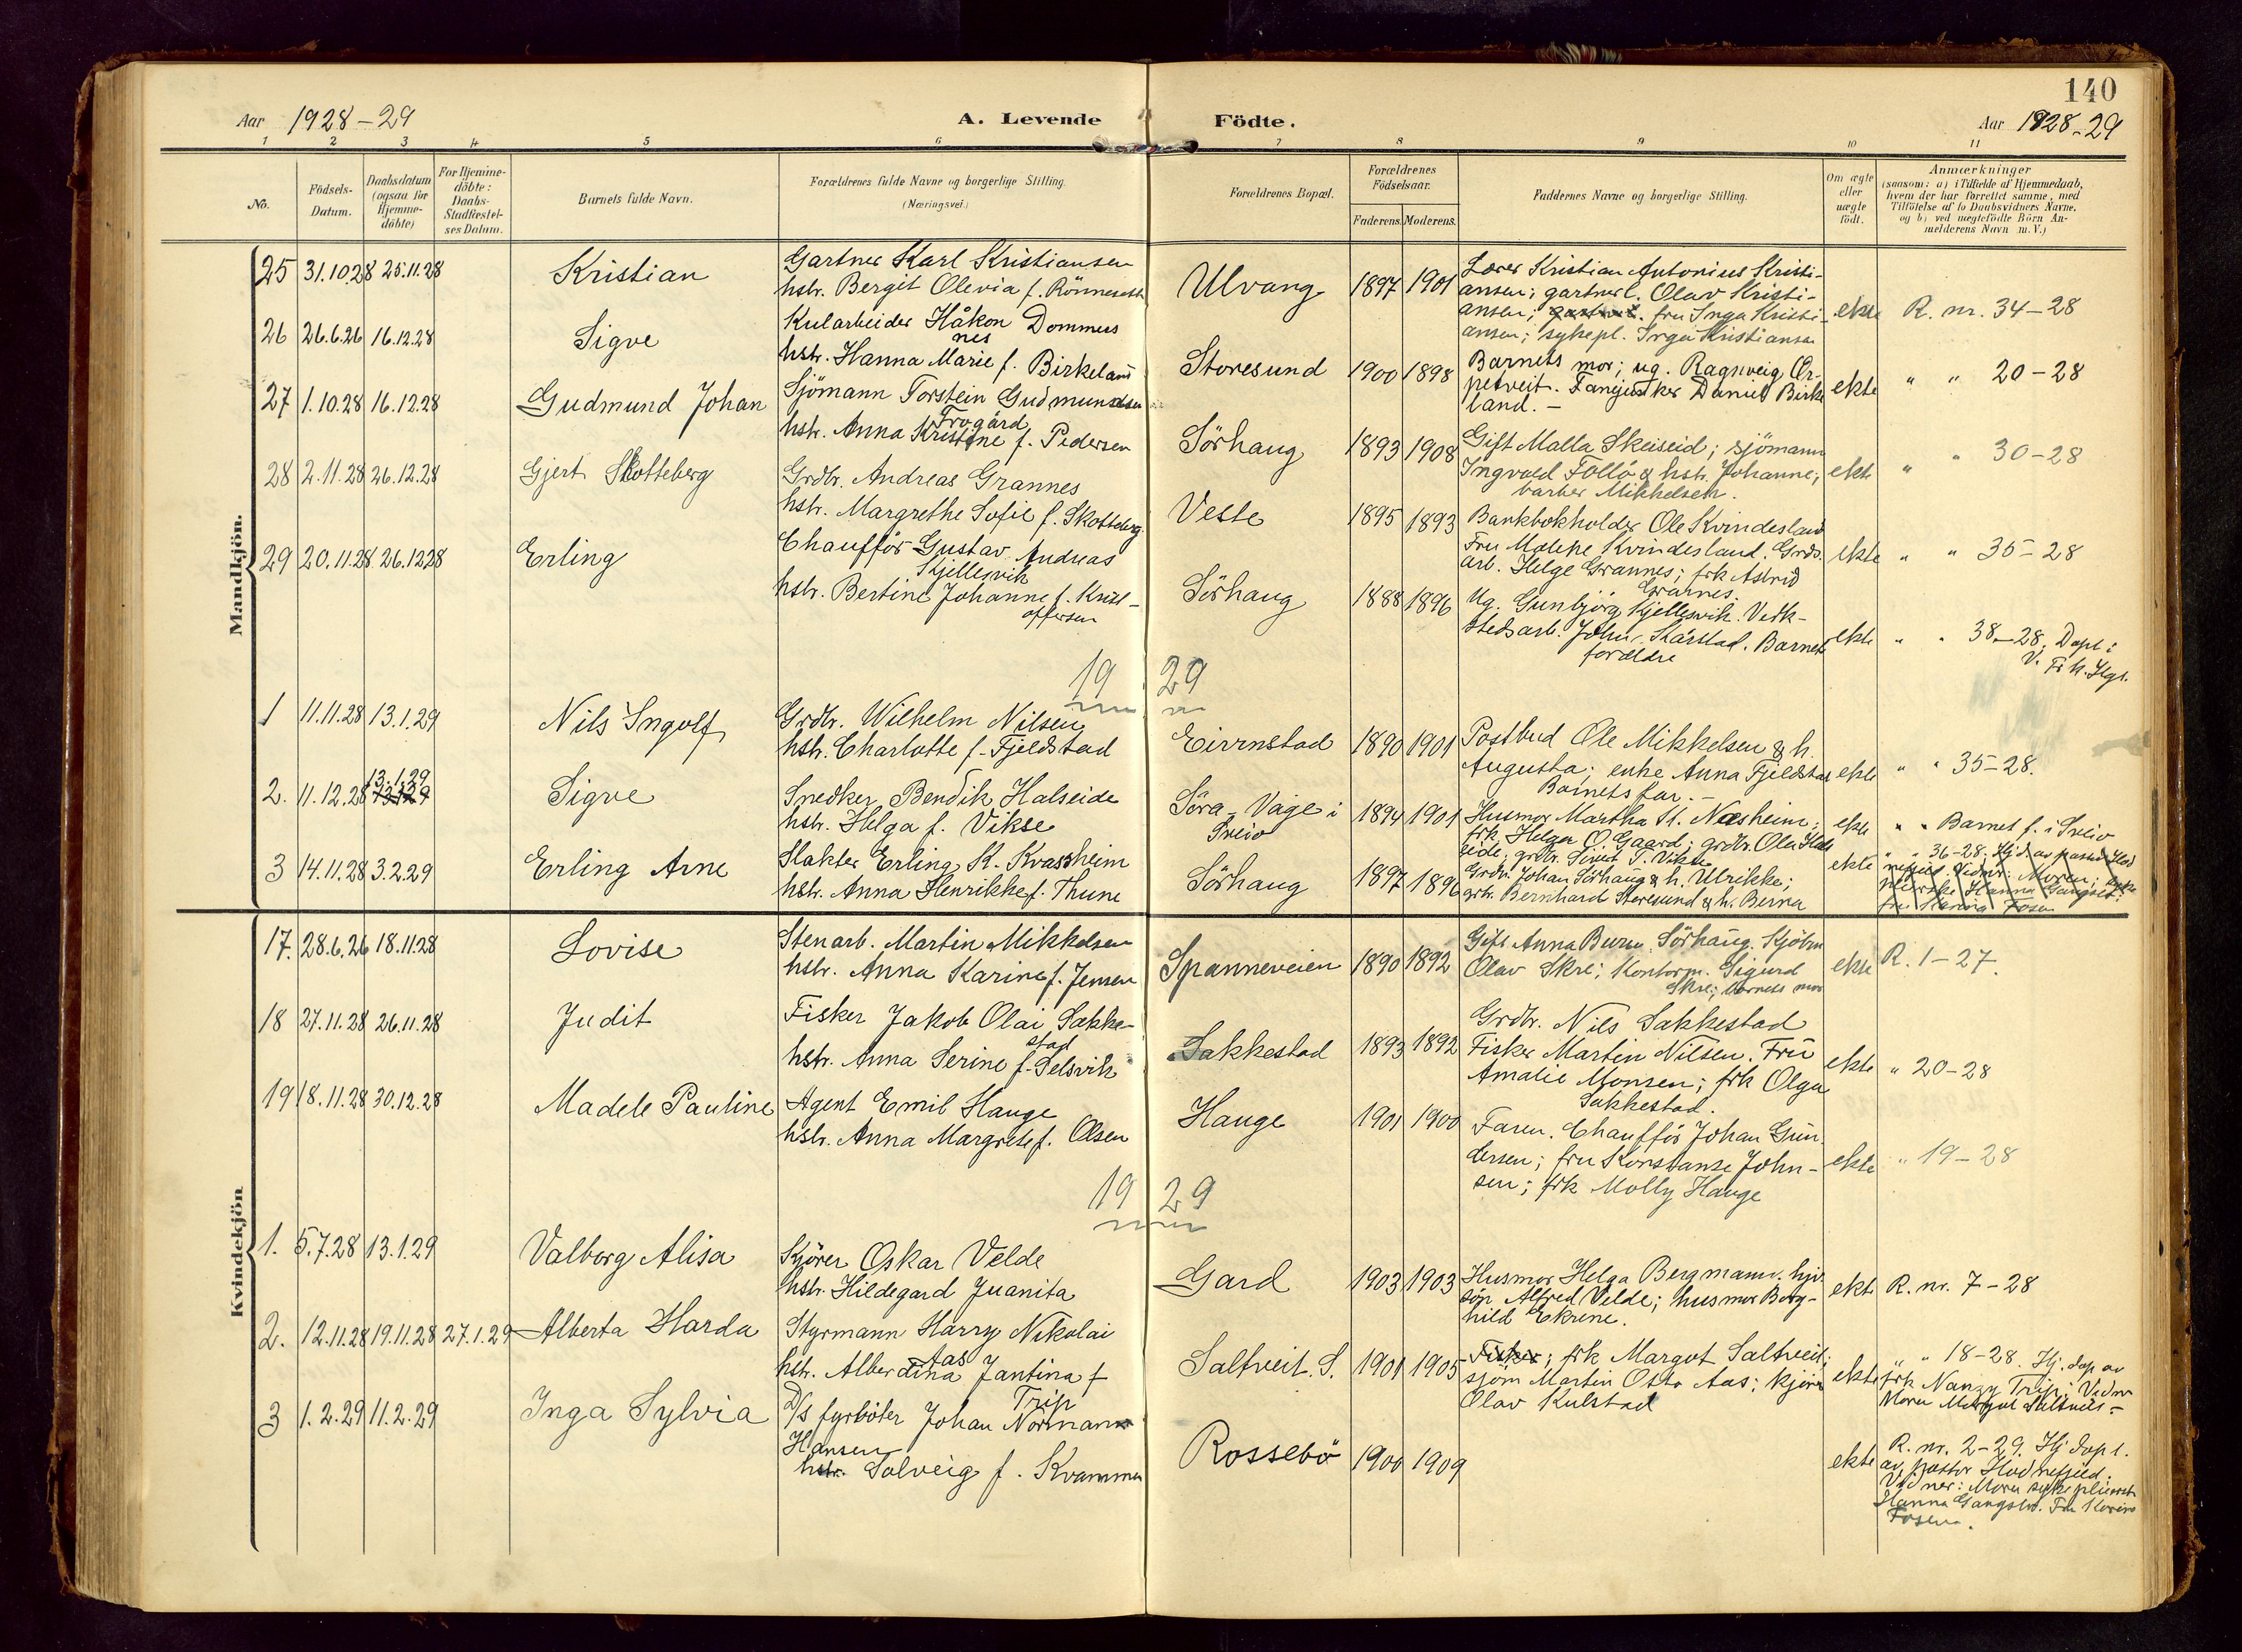 140
Aar 1928-29
A. Levende Födte.
Aar 1928-29
1 2 3 4 5 6 7 8 9 10 11
No.
Födsels-Datum.
Daabsdatum (ogsaa for Hjemmedöbte)
For Hjemmedöbte: Daabs-Stadfæstelses Datum.
Barnets fulde Navn.
Forældrenes fulde Navne og borgerlige Stilling. (Næringsvei.)
Forældrenes Bopæl.
Forældrenes Födselsaar.
Faderens. Moderens.
Faddernes Navne og borgerlige Stilling.
Om ægte eller uægte födt.
Anmærkninger
(saasom: a) i Tilfælde af Hjemmedaab,
hvem der har forrettet samme, med
Tilföielse af to Daabsvidners Navne,
og b) ved uægtefödte Börn Anmelderens Navn m. V.)
Mandkjön.
25 31.10.28 25.11.28 Kristian
Gartner Karl Kristiansen
hstr. Bergit Olevia f. Rönnesest
Ulvang 1897 1901
Lærer Kristian Antonius Kristi-
ansen; gartnerl. Olav Kristi-
ansen; fru Inga Kristi-
ansen; sykepl. Inga Kristiansen
ekte R. nr. 34-28
26 26.6.26 16.12.28 Sigve
Kularbeider Håkon Dommers
nes
hstr. Hanna Marie f. Birkeland
Storesund 1900 1898
Barnets mor; ug. Ragnveig Ør-
petveit. Daniel Birke
land. -
ekte " " 20-28
27 1.10.28 16.12.28 Gudmund Johan
Sjömann Torstein Gudmundsen
Frogård
hstr. Anna Kristine f. Pedersen
Sörhaug 1893 1908
Gift Malla Skeiseid; sjömann
Ingvald Follö & hstr. Johanne;
barber Mikkelsen.
ekte " " 30-28
28 2.11.28 26.12.28 Gjert Skotteberg
Grdbr. Andreas Grannes
hstr. Margrethe Sofie f. Skotteberg
Veste 1895 1893
Bankbokholder Ole Kvindesland
Fru Malene Kvindesland. Grds.
arb. Helge Grannes; frk Astrid
Grannes.
ekte " " 35-28
29 20.11.28 26.12.28 Erling
Chaufför Gustav Andreas
Kjellesvik
hstr. Bertine Johanne f. Krist-
offersen
Sörhaug 1888 1896
Ug. Gunbjörg Kjellesvik. Verk-
stedsarb. John Skårstad. Barnets
forældre
ekte " " 38-28. Döpt i
V. Fr.k. Hgs.
19 29
1 11.11.28 13.1.29 Nils Ingolf
Grdbr. Wilhelm Nilsen
hstr. Charlotte f. Fjeldstad
Eivinstad 1890 1901
Postbud Ole Mikkelsen & h.
Augusta; enke Anna Fjeldstad
Barnets far. -
ekte " " 35-28.
2. 11.12.28 13.1.29 Sigve
Snedker Bendik Halseide
hstr. Helga f. Vikse
Söra-Våge i
Sveio 1894 1901
Husmor Martha H. Næsheim;
frk Helga O. Gaard; grdbr. Ola Hals
eide; grdbr. Sivert T. Vikse
ekte " " Barnet f. i Sveio
3 14.11.28 3.2.29 Erling Arne
Slakter Erling K. Kvassheim
hstr. Anna Henrikke f. Thune
Sörhaug 1897 1896
Grdbr. Johan Sörhaug & h. Ulrikke;
grbr. Bernhard Storesund & h. Berna
ekte " " 36-28; Hj.d. av pastor Hod
nefjeld. Vidner: Moren; syke
pleierske Hanna Gangstö.
fru Karina Fosen
Kvindekjön
17. 28.6.26 18.11.28 Lovise
Stenarb. Martin Mikkelsen
hstr. Anna Karine f. Jensen
Spanneveien 1890 1892
Gift Anna Sörhaug. Kjöbm
Olav Skre; Kontorm. Sigurd
Skre; barnets mor
ekte R. 1-27.
18 27.11.28 26.11.28 Judit
Fisker Jakob Olai Sakke-
stad
hstr. Anna Serine f. Selsvik
Sakkestad 1893 1892
Grdbr. Nils Sakkestad
Fisker Martin Nilsen. Fru
Amalie Monsen; frk Olga
Sakkestad.
ekte " 20-28
19 18.11.28 30.12.28 Madele Pauline
Agent Emil Hauge
hstr. Anna Margrete f. Olsen
Hauge 1901 1900
Faren. Chaufför Johan Gun-
dersen; fru Konstanse John-
sen; frk Molly Hauge
ekte " 19-28
19 29
1. 5.7.28 13.1.29 Valborg Alisa
Kjörer Oskar Velde
hstr. Hildegard Juanita
Gard 1903 1903
Husmor Helga Bergmann. hjv.
søn Alfred Velde; husmor Borg-
hild Ekrene.
ekte R. nr. 7-28
2. 12.11.28 19.11.28 27.1.29 Alberta Harda
Styrmann Harry Nikolai
Aas
hstr. Alberdina Jantina f
Trip
Saltveit. S. 1901 1905
Fisker; frk Margot Saltveit;
sjöm Martin Otto Aas; kjörer
Olav Kulstad
ekte " " 18-28. Hj. döp. av
frk Nanny Trip. Vidner
Moren Margot Saltveit-
3 1.2.29 11.2.29 Inga Sylvia
D/s fyrböter Johan Normann
Hansen
hstr. Solveig f. Kvammen
Rossebö 1900 1909
ekte R. nr. 2-29. Hj döpt.
av pastor Hodnefjeld.
Vidner: Moren sykepleierske
Hanna Gangstö. Fru Karine
Fosen.